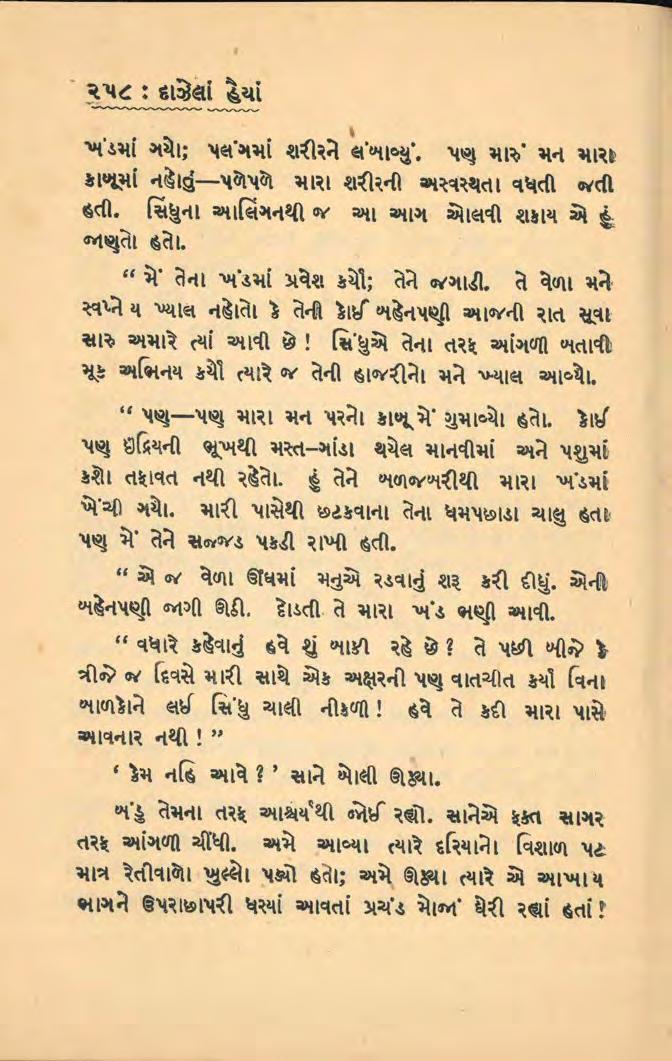 ૨૫૮ : દાઝેલાં હૈયાં
ખંડમાં ગયો; પલંગમાં શરીરને લંબાવ્યું. પણ મારું મન મારા
કાબૂમાં નહોતું—પળેપળે મારા શરીરની અસ્વસ્થતા વધતી જતી
હતી. સિંધુના આલિંગનથી જ આ આગ ઓલવી શકાય એ હું
જાણતો હતો.
“ મેં તેના ખંડમાં પ્રવેશ કર્યો; તેને જગાડી. તે વેળા મને
સ્વપ્ને ય ખ્યાલ નહોતો કે તેની કોઈ બહેનપણી આજની રાત સૂવા
સારુ અમારે ત્યાં આવી છે ! સિંધુએ તેના તરફ આંગળી બતાવી
મૂક અભિનય કર્યો ત્યારે જ તેની હાજરીનો મને ખ્યાલ આવ્યો.
“ પણ—પણ મારા મન પરનો કાબૂ મેં ગુમાવ્યો હતો. કોઈ
પણ ઇંદ્રિયની ભૂખથી મસ્ત–ગાંડા થયેલ માનવીમાં અને પશુમાં
કશો તફાવત નથી રહેતો. હું તેને બળજબરીથી મારા ખંડમાં
ખેંચી ગયો. મારી પાસેથી છટકવાના તેના ધમપછાડા ચાલુ હતા
પણ મેં તેને સજ્જડ પકડી રાખી હતી.
“ એ જ વેળા ઊંઘમાં મનુએ રડવાનું શરૂ કરી દીધું. એની
બહેનપણી જાગી ઊઠી. દોડતી તે મારા ખંડ ભણી આવી.
“ વધારે કહેવાનું હવે શું બાકી રહે છે ? તે પછી બીજે કે
ત્રીજે જ દિવસે મારી સાથે એક અક્ષરની પણ વાતચીત કર્યા વિના
બાળકોને લઈ સિંધુ ચાલી નીકળી ! હવે તે કદી મારા પાસે
આવનાર નથી ! ”
‘ કેમ નહિ આવે ? ’ સાને બોલી ઊઠ્યા.
બંડુ તેમના તરફ આશ્ચર્યથી જોઈ રહ્યો. સાનેએ ફક્ત સાગર
તરફ આંગળી ચીંધી. અમે આવ્યા ત્યારે દરિયાનો વિશાળ પટ
માત્ર રેતીવાળો ખુલ્લો પડ્યો હતો; અમે ઊઠ્યા ત્યારે એ આખા ય
ભાગને ઉપરાછાપરી ધસ્યાં આવતાં પ્રચંડ મોજાં ઘેરી રહ્યાં હતાં !